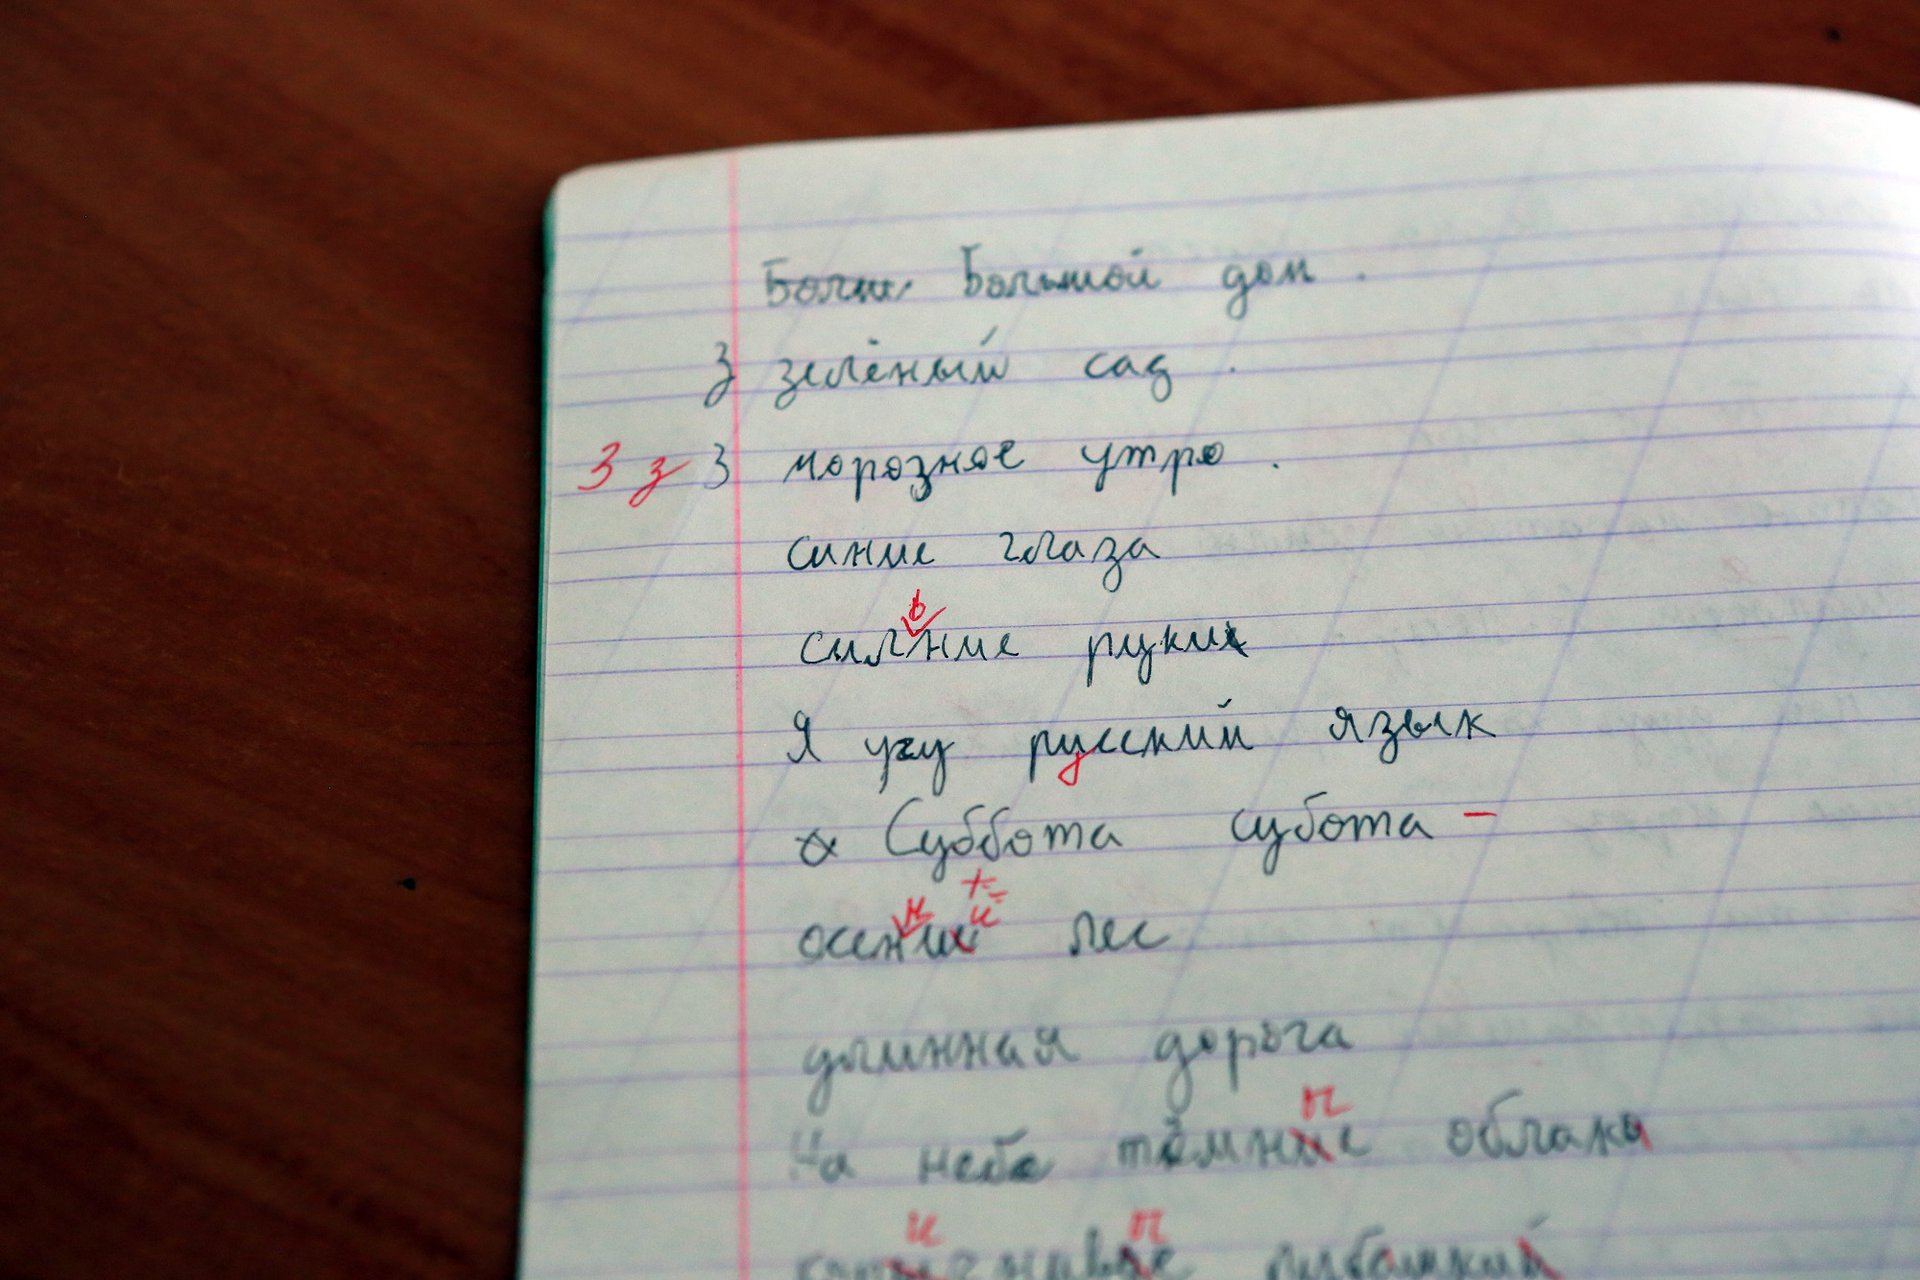 Больш Большой дом.
З зелёный сад.
З з З морозное утро.
синие глаза
ь
силние руки
Я учу русский язык
Суббота субота -
н и
осений лес
длинная дорога
ы
На небе тёмние облака
и ы